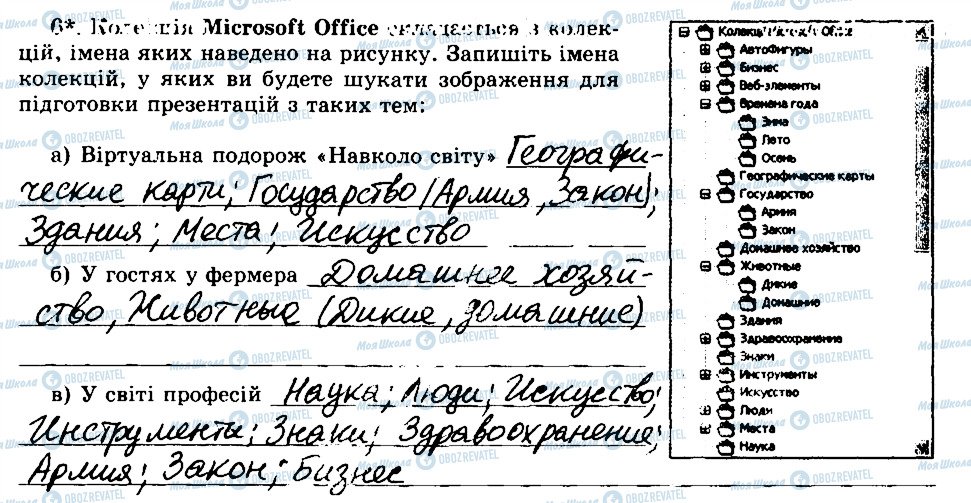 6*. Колекція Microsoft Office складається з колек-
цій, імена яких наведено на рисунку. Запишіть імена
колекцій, у яких ви будете шукати зображення для
підготовки презентацій з таких тем:
а) Віртуальна подорож «Навколо світу» Географи-
ческие карти; Государство (Армия, Закон);
Здания; Места; Искусство
б) У гостях у фермера Домашнее хозяй-
ство, Животные (Дикие, домашние)
в) У світі професій Наука; Люди; Искусство;
Инструменты; Знаки; Здравоохранение;
Армия; Закон; Бизнес
Автофигуры
Бизнес
Веб-элементы
Времена года
Зима
Лето
Осень
Географические карты
Государство
Армия
Закон
Домашнее хозяйство
Животные
Дикие
Домашние
Здания
Здравоохранение
Знаки
Инструменты
Искусство
Люди
Места
Наука